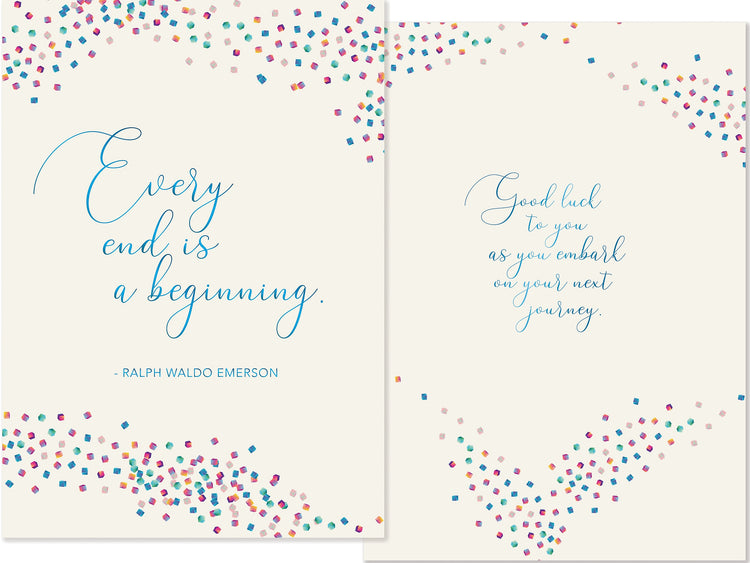 Every
end is
a beginning.
- RALPH WALDO EMERSON
Good luck
to you
as you embark
on your next
journey.